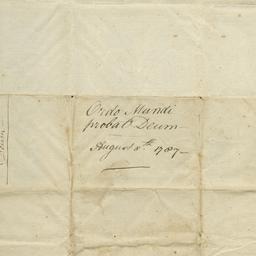 Ordo Mundi
probat Deum
August 8th. 1787—